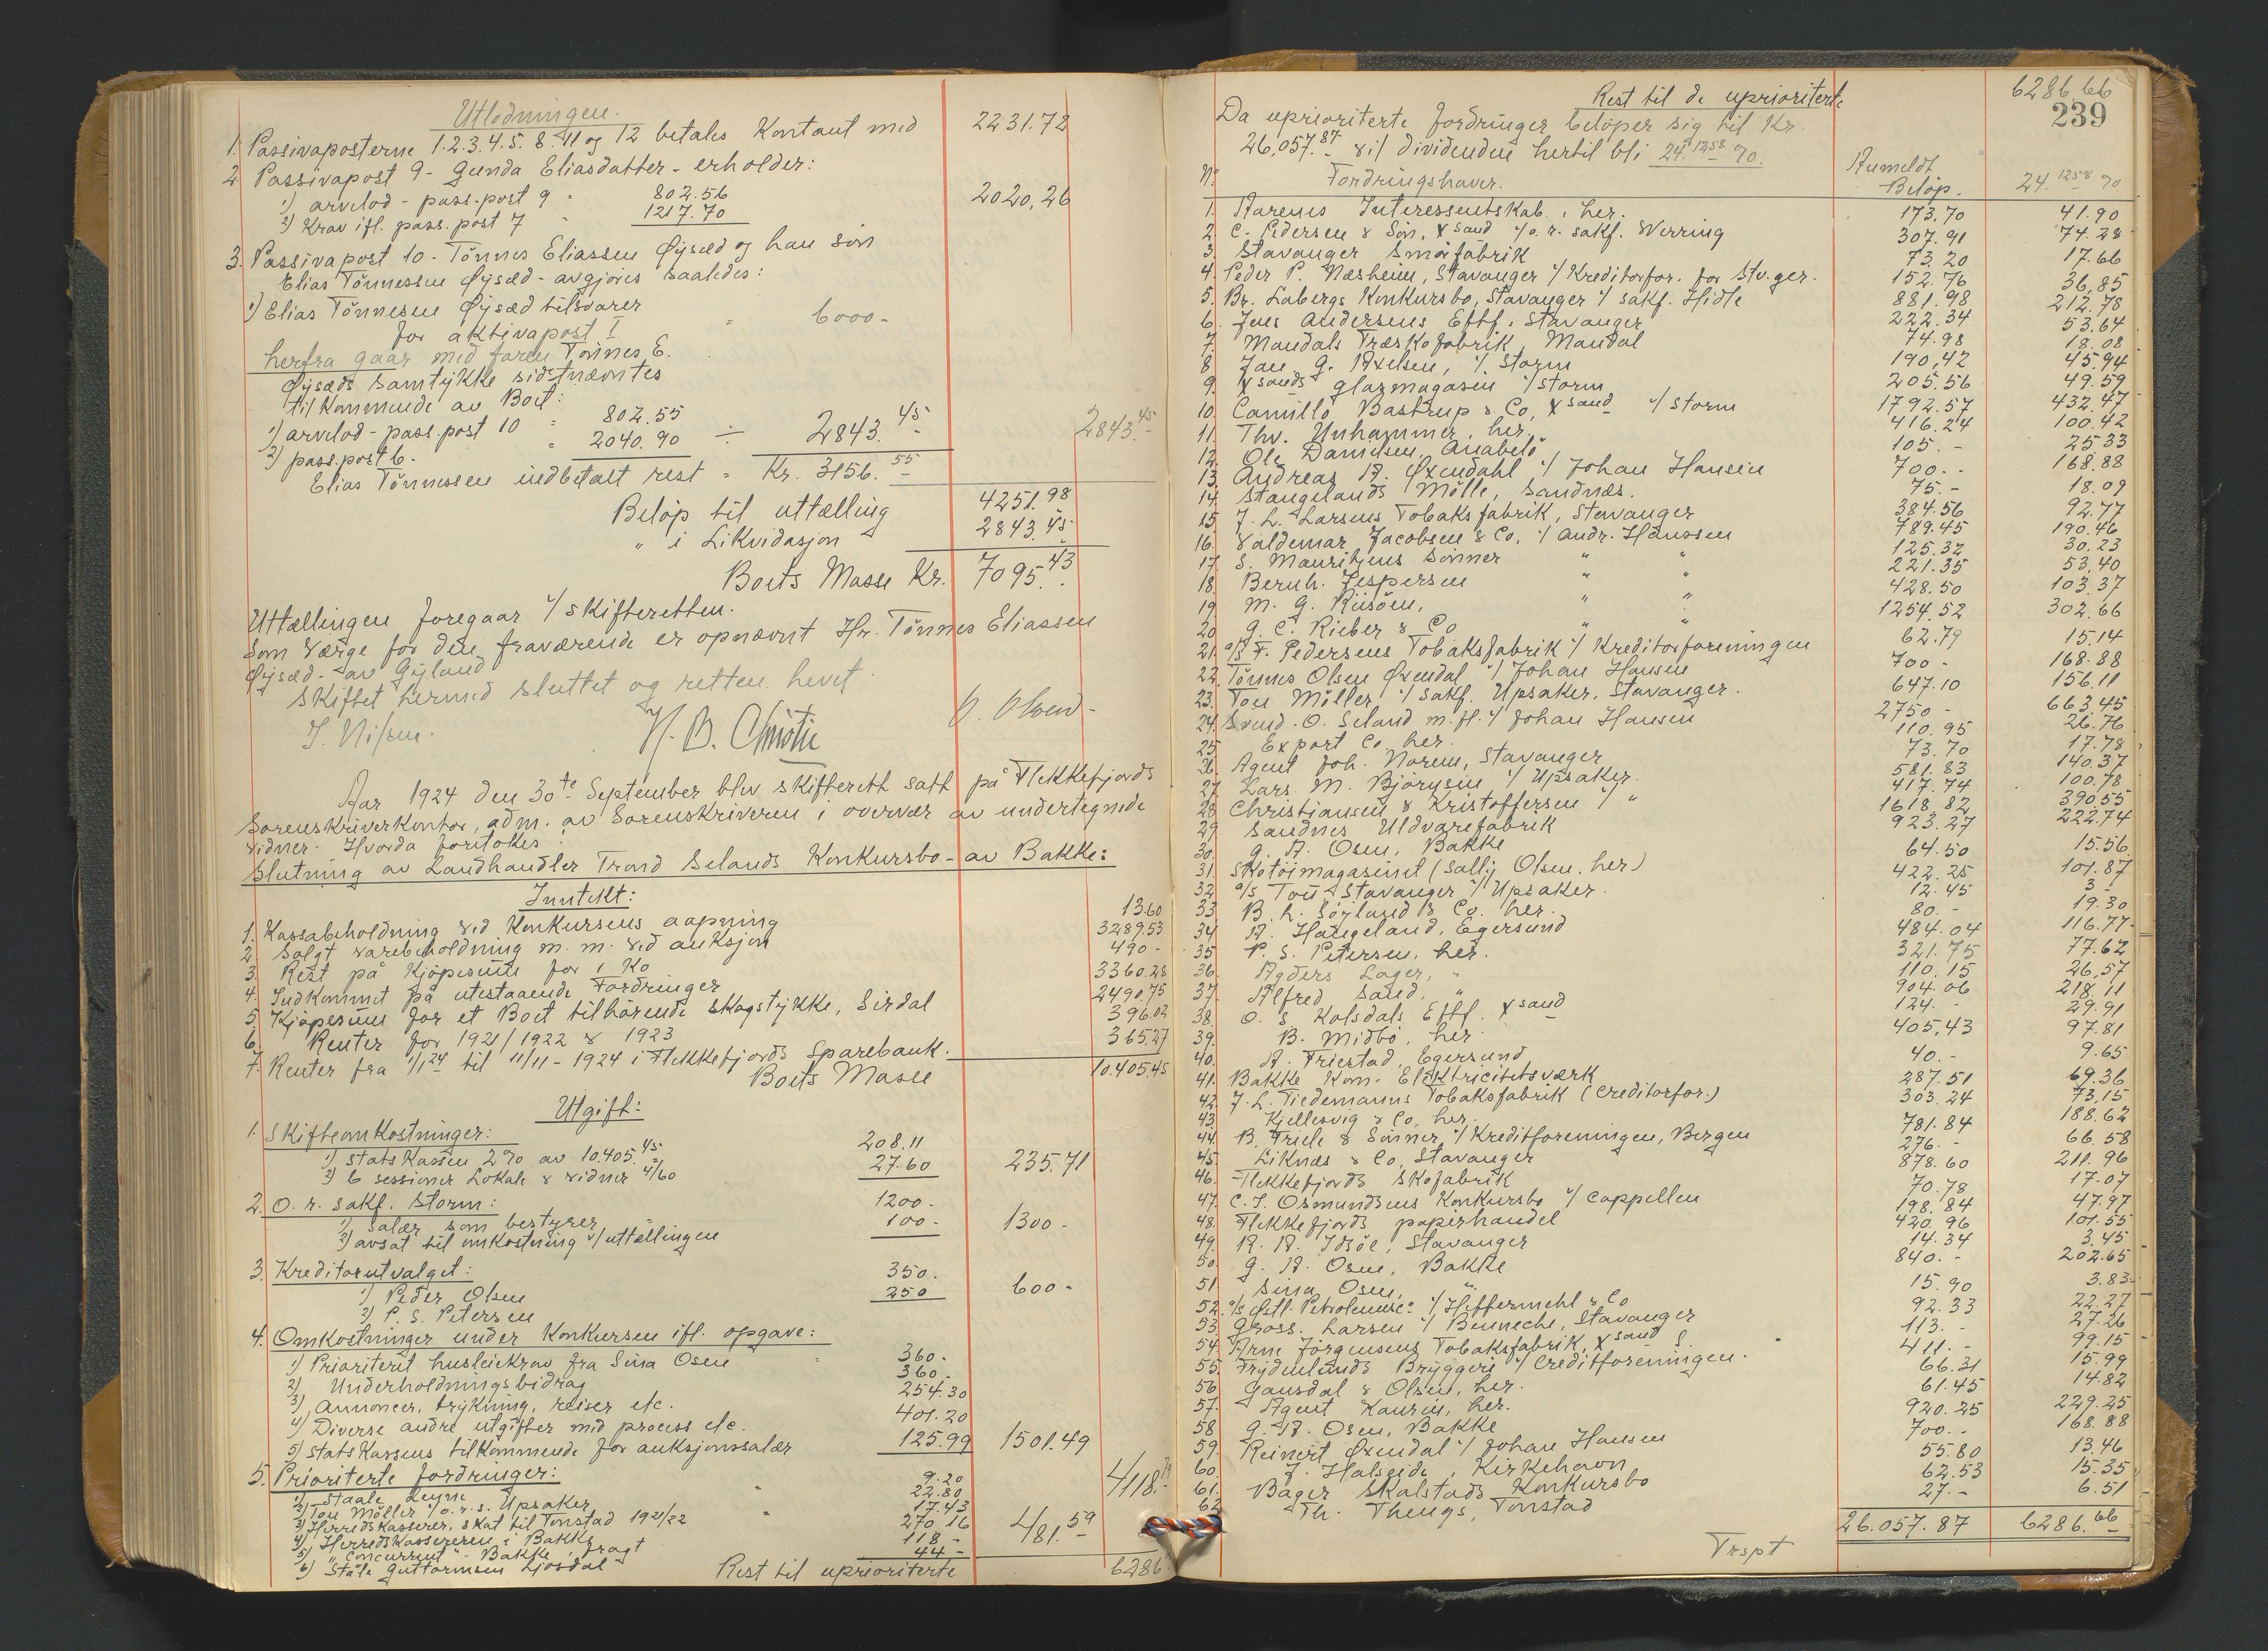 Utlodningen.
1. Passivaposterne 1.2.3.4.5.8.11 og 12 betales Kontant med 2231.72
2. Passivapost 9 - Gunda Eliasdatter - erholder:
1) arvelod - pass.post 9 " 802.56
2) Krav ifl. pass. post 7 " 1217.70 2020,26
3. Passivapost 10 - Tönnes Eliassen Øysæd og han sön
Elias Tönnessen Øysæd - avgjöres saaledes:
1) Elias Tönnesen Øysæd tilsvarer
for aktivapost I " 6000-
herfra gaar med faren Tönnes E.
Øysæds samtykke sidstnævntes
tilkommende av Boet:
1) arvelod - pass.post 10 " 802.55
2) pass.post 6. " 2040.90 ÷ 2843.45 2843.45
Elias Tönnessen indbetalt rest " Kr. 3156.55
Belöp til uttælling 4251.98
" i Likvidasjon 2843.45
Boets Masse Kr. 7095.43
Uttællingen foregaar v/ skifteretten.
Som Værge for den fraværende er opnævnt Hr. Tönnes Eliassen
Øysæd - av Gyland
Skiftet hermed sluttet og retten hevet.
J. Nilsen. H. B. Christie O. Olsen-
Aar 1924 den 30te September blev skifterett satt på Flekkefjords
Sorenskriverkontor, adm. av Sorenskriveren i overvær av undertegnede
vidner. Hvorda foretokes:
Slutning av Landhandler Trond Selands Konkursbo - av Bakke:
Inntekt:
1. Kassabeholdning ved Konkursens aapning 13.60
2. Solgt varebeholdning m.m. ved auksjon 3289.53
3. Rest på Kjöpesum for 1 Ko 490-
4. Indkommet på utestaaende Fordringer 3360.28
5. Kjöpesum for et Boet tilhörende skogstykke, Sirdal 2490.75
6. Renter for 1921/1922 & 1923 396.02
7. Renter fra 1/1 24 til 11/11 - 1924 i Flekkefjords Sparebank. 365.27
Boets Masse 10.405.45
Utgift:
1. Skifteomkostninger:
1) Statskassen 2% av 10.405.45 208.11
2) 6 sessioner Lokale & vidner 4/60 27.60 235.71
2. O. r. sakf. Storm:
1) Salær som bestyrer 1200-
2) avsat til omkostning v/ uttællingen 100- 1300-
3. Kreditorutvalget:
1) Peder Olsen 350.
2) P. S. Petersen 250 600-
4. Omkostninger under Konkursen ifl. opgave:
1) Prioriteret husleiekrav fra Sina Osen 360.
2) Underholdningsbidrag 360.
3) Annoncer, trykning, reiser etc. 254.30
4) Diverse andre utgifter med process etc. 401.20
5) Statskassens tilkommende for auksjonssalær 125.99 1501.49
5. Prioriterte fordringer: 4118.79
1) Staale 9.20
2) Tou Möller v/ o.r.s. Upsaker 22.80
3) Herredskasserer, skat til Tonstad 1921/22 17.43
4) Herredskassereren i Bakke 270.16
5) "Concurrent" - Bakke, fragt 118- 481.59
6) Ståle Guttormsen Ljosdal 44-
Rest til uprioriterte 6286.
Rest til de uprioriterte 6286.66
239
Da uprioriterte fordringer belöper sig til Kr.
26,057.87 vil dividenden hertil bli 24.1258 %.
No. Fordringshaver. Anmeldt Belöp. 24.1258 %
1. Aarenes Interessentskab, her. 173.70 41.90
2. C. Pedersen & Sön, Xsand v/ o. r. sakf. Werring 307.91 74.28
3. Stavanger Smörfabrik 73.20 17.66
4. Peder P. Næsheim, Stavanger v/ Kreditorfor. for Stv.ger. 152.76 36,85
5. Br. Labergs Konkursbo, Stavanger v/ sakf. Hidle 881.98 212.78
6. Jens Andersens Eftf. Stavanger 222.34 53.64
7. Mandals Træskofabrik, Mandal 74.98 18.08
8. Jan G. Axelsen, v/ Storm 190,42 45.94
9. Xsands glasmagasin v/ Storm 205.56 49.59
10. Camillo Bastrup & Co, Xsand v/ Storm 1792.57 432.47
11. Thv. Unhammer, her. 416.24 100.42
12. Ole Danielsen, Anabelö 105.- 25.33
13. Andreas A. Øxendahl v/ Johan Hansen 700.- 168.88
14. Stangelands Mölle, Sandnæs. 75.- 18.09
15. J. L. Larsens Tobaksfabrik, Stavanger 384.56 92.77
16. Valdemar Jacobsen & Co. v/ Andr. Hanssen 789.45 190.46
17. S. Mauritzens Sönner " " 125.32 30.23
18. Bernh. Jespersen " " 221.35 53,40
19. M. G. Riisöen, " " 428.50 103.37
20. G. C. Rieber & Co " " 1254.52 302.66
21. A/S F. Pedersens Tobaksfabrik v/ Kreditorforeningen 62.79 15.14
22. Tönnes Olsen Øxendal v/ Johan Hansen 700- 168.88
23. Tou Möller v/ sakf. Upsaker, Stavanger. 647.10 156.11
24. Svend. O. Seland m. fl. v/ Johan Hansen 2750- 663.45
25. Export Co, her. 110.95 26.76
26. Agent Joh. Noren, Stavanger 73.70 17.78
27. Lars M. Björnsen v/ Upsaker. 581.83 140.37
28. Christiansen & Kristoffersen v/ " 417.74 100.78
29. Sandnes Uldvarefabrik 1618.82 390.55
30. G. A. Osen, Bakke 923.27 222.74
31. Skotöimagasinet (Sally Olsen, her) 64.50 15.56
32. A/S Tou - Stavanger v/ Upsaker. 422.25 101.87
33. B. L. Söyland & Co. her. 12.45 3-
34. A. Haugeland, Egersund 80.- 19.30
35. P. S. Petersen, her. 484.04 116.77
36. Agders Lager, " 321.75 77.62
37. Alfred Sand, " 110.15 26,57
38. O. S. Kolsdals Eftf. Xsand 904.06 218.11
39. B. Midbö, her. 124.- 29.91
40. A. Friestad, Egersund 405,43 97.81
41. Bakke Kom. Elektricitetsværk 40.- 9.65
42. J. L. Tiedemanns Tobaksfabrik (Creditorfor.) 287.51 69.36
43. Kjellesvig & Co, her. 303.24 73,15
44. B. Friele & Sönner v/ Kreditforeningen, Bergen 781.84 188.62
45. Liknæs & Co, Stavanger 276.- 66.58
46. Flekkefjords Skofabrik 878.60 211.96
47. C. J. Osmundsens Konkursbo v/ Cappellen 70.78 17.07
48. Flekkefjords papirhandel 198.84 47.97
49. A. A. Idsöe, Stavanger 420.96 101.55
50. G. A. Osen, Bakke 14.34 3.45
51. Sina Osen, " 840.- 202.65
52. A/S Østl. Petroleumsc: v/ Heffermehl & Co 15.90 3.83
53. Gross. Larsen v/ Benneche, Stavanger 92.33 22.27
54. Arne Jörgensens Tobaksfabrik, Xsand 113.- 27.26
55. Frydenlunds Bryggeri v/ Creditforeningen. 411.- 99.15
56. Gausdal & Olsen, her. 66.31 15.99
57. Agent Kaurin, her. 61.45 14.82
58. G. A. Osen, Bakke 920.25 229.25
59. Reinert Øxendal v/ Johan Hansen 700.- 168.88
60. J. Halseide, Kirkehavn 55.80 13.46
61. Bager Skalstads Konkursbo 62.53 15.35
62. Th. Thengs, Tonstad 27.- 6.51
Trspt 26.057.87 6286.66